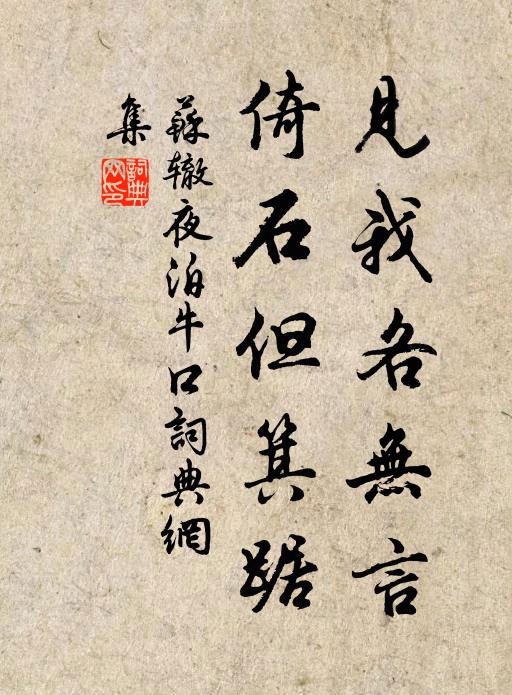 見我各無言
倚石但箕踞
蘇辙夜泊牛口詞典網
集
詞典
网印